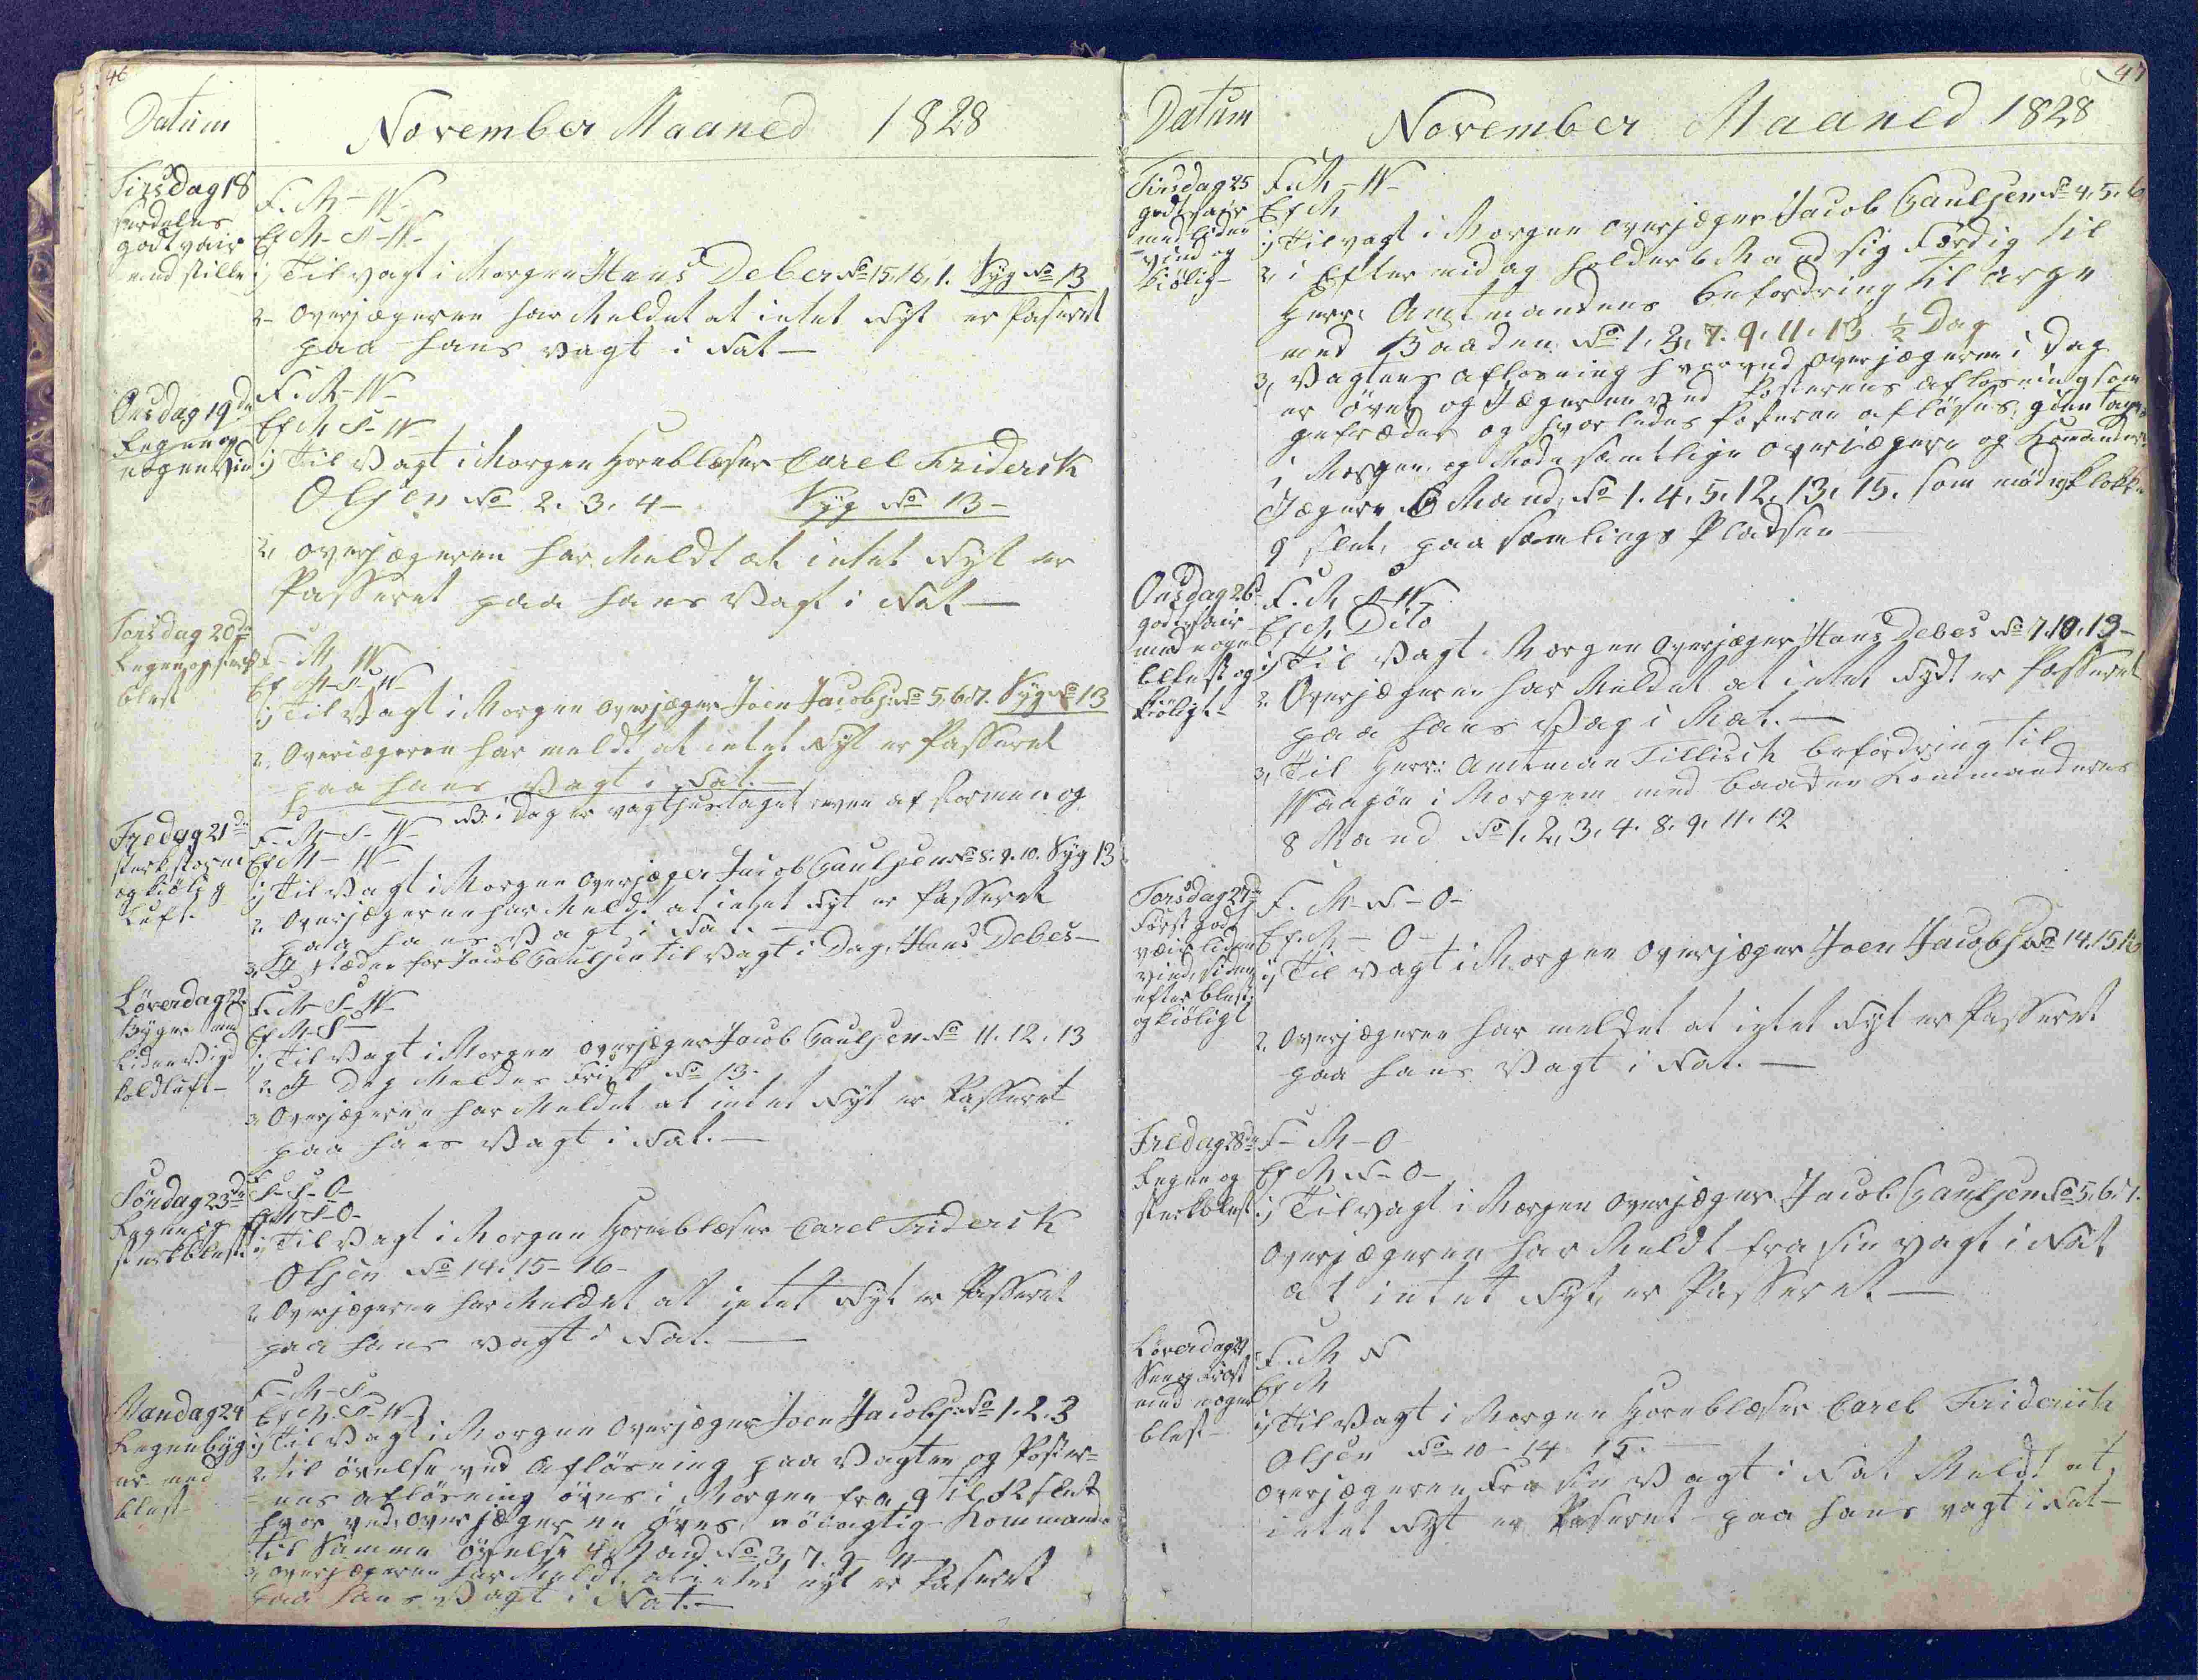 46
Datum
November Maaned 1828
Tirsdag 18
godt vair
med stille
F. M - W -
Ef M - S - W -
1) Til vagt i Morgen Hans Debes No 15, 16, 1. Syg No 13
2 - Overjægeren har Meldet at intet Nyt er Paseret
paa hans vagt i Nat -
Onsdag 19de
Regen og
nogen Vind
F. M - W -
Ef M S - W -
1) Til Vagt i Morgen Hornblæser Carel Friderik
Olsen No 2. 3. 4 - Syg No 13 -
2, overjægeren har Meldt at intet Nyt er
Passeret paa hans Vagt i Nat -
Torsdag 20de
Regen og sterk
blest
F - M W -
Ef M - S - W -
1) Til Vagt i Morgen overjæger Joen Jacobs: No 5, 6, 7. Syg No 13
2. Overiægeren har meldt at intet Nyt er Passeret
paa hans Vagt i Nat. -
NB. i Dag er vagthustaget reven af stormen og
Fredag 21de
sterk storm
og kiølig
Luft.
F - M - S - W -
Ef M - W -
1) Til Vagt i Morgen overjæger Jacob Paulsen No 8. 9. 10. Syg 13
2. Overjægeren har Meldt at intet Nyt er Passeret
paa hans Vagt i Nat. -
3, I stæden for Jacob Paulsen til Vagt i Dag, Hans Debes -
Løverdag 22.
Byger med
Liden Vind
kold luft -
F. M - S - W -
Ef M - S -
1) Til Vagt i Morgen overjæger Jacob Paulsen No 11. 12. 13
2. I Dag Meldes Frisk No 13.
3 Overjægeren har Meldet at intet Nyt er Passeret
paa hans Vagt i Nat. -
Søndag 23de
Regen og
sterk blest
F - S - O -
Ef M S - O -
1) Til Vagt i Morgen Hornblæser Carel Friderik
Olsen No 14. 15 - 16 -
2 Overjægeren har Meldet at intet Nyt er Passeret
paa hans vagt i Nat. -
Mandag 24
Regenbyg
er med
blest -
F - M - S -
Ef M - S - W -
1) Til Vagt i Morgen Overjæger Joen Jacobs: No 1. 2. 3
2. til øvelse ved Afløsning paa Vagten og Poster=
nes afløsning øves i Morgen fra 9 til 12 slet
hvor ved overjægeren øves nöiagtig Kommand
til samme øvelse 4 Mand No 3, 7. 9 - 11 -
3 overjægeren har Meldt at intet nyt er Paseret
paa hans Vagt i Nat. -
47
Datum
November Maaned 1828
Tirsdag 25
godt vair
med liden
vind og
kiølig -
F. M - W -
Ef M
1) Til vagt i Morgen overjæger Jacob Paulsen No 4, 5. 6
2 i Eftermidag holder 6 Mand sig Færdig til
Herr: Amtmandens befordring til Arge
med Baaden No 1. 3. 7. 9. 11. 13 ½ Dag
3, Vagtens afløsning hvorved overjægeren i Dag
er øvet og Jægeren ved Posterens afløsning som
gefræder og hvorledes Posteren afløses, gientages
i Morgen og Møde samtlige overiægere og Komanderes
Jægere 6 Mand, No 1. 4. 5. 12. 13. 15. som møder Klokk:
9 slet, paa Samlings Pladsen -
Onsdag 26
godt vair
med nogen
blest og
kiøligt -
F. M S - W
Ef M Dito
1) Til Vagt i Morgen overjæger Hans Debes No 7. 10. 13 -
2. Overjægeren har Meldet at intet Nydt er Passeret
paa hans Vag i Nat. -
3, Til Herr: Amtman Tillisch befordring til
Waagøe i Morgen med baaden Kommanderes
8 Mand No 1. 2, 3. 4. 8. 9. 11. 12
Torsdag 27de
Først godt
væir liden
vind, siden
efter blest
og kiøligt
F. M - N - O -
Ef. M - O -
1) Til vagt i Morgen overjæger Joen Jacobs: No 14. 15 16
2. Overjægeren har meldet at intet Nyt er Passeret
paa hans Vagt i Nat. -
Fredag 28de
Regen og
sterk blest
F - M - O
Ef M N - O -
1) Til vagt i Morgen overjæger Jacob Paulsen No 5, 6, 7.
Overjægeren har Meldt fra sin vagt i Nat
at intet Nyt er Passeret. -
Løverdag 29
Sne og Frost
med nogen
blest -
F. M N
Ef M
1) Til Vagt i Morgen Hornblæser Carel Friderich
Olsen No 10 - 14 15. -
Overjægeren Fra sin Vagt i Nat Meldt at
intet Nyt er Paseret paa hans vagt i Nat -